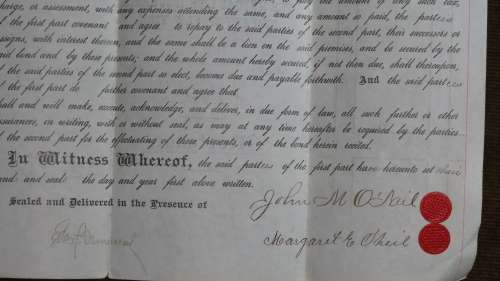 to pay the amount of any such tax,
charge, or assessment, with any expenses attending the same, and any amount so paid, the parties
of the first part covenant and agree to repay to the said parties of the second part, their successors or
assigns, with interest thereon, and the same shall be a lien on the said premises, and be secured by the
said bond and by these presents; and the whole amount hereby secured, if not then due, shall thereupon,
if the said parties of the second part so elect, become due and payable forthwith. And the said parties
of the first part do further covenant and agree that
shall and will make, execute, acknowledge, and deliver, in due form of law, all such further or other
assurances, in writing, with or without seal, as may at any time hereafter be required by the parties
of the second part for the effectuating of these presents, or of the bond herein recited.
In Witness Whereof, the said parties of the first part have hereunto set their
hand and seal the day and year first above written.
Sealed and Delivered in the Presence of
John M O'Neil
Margaret E O'Neil